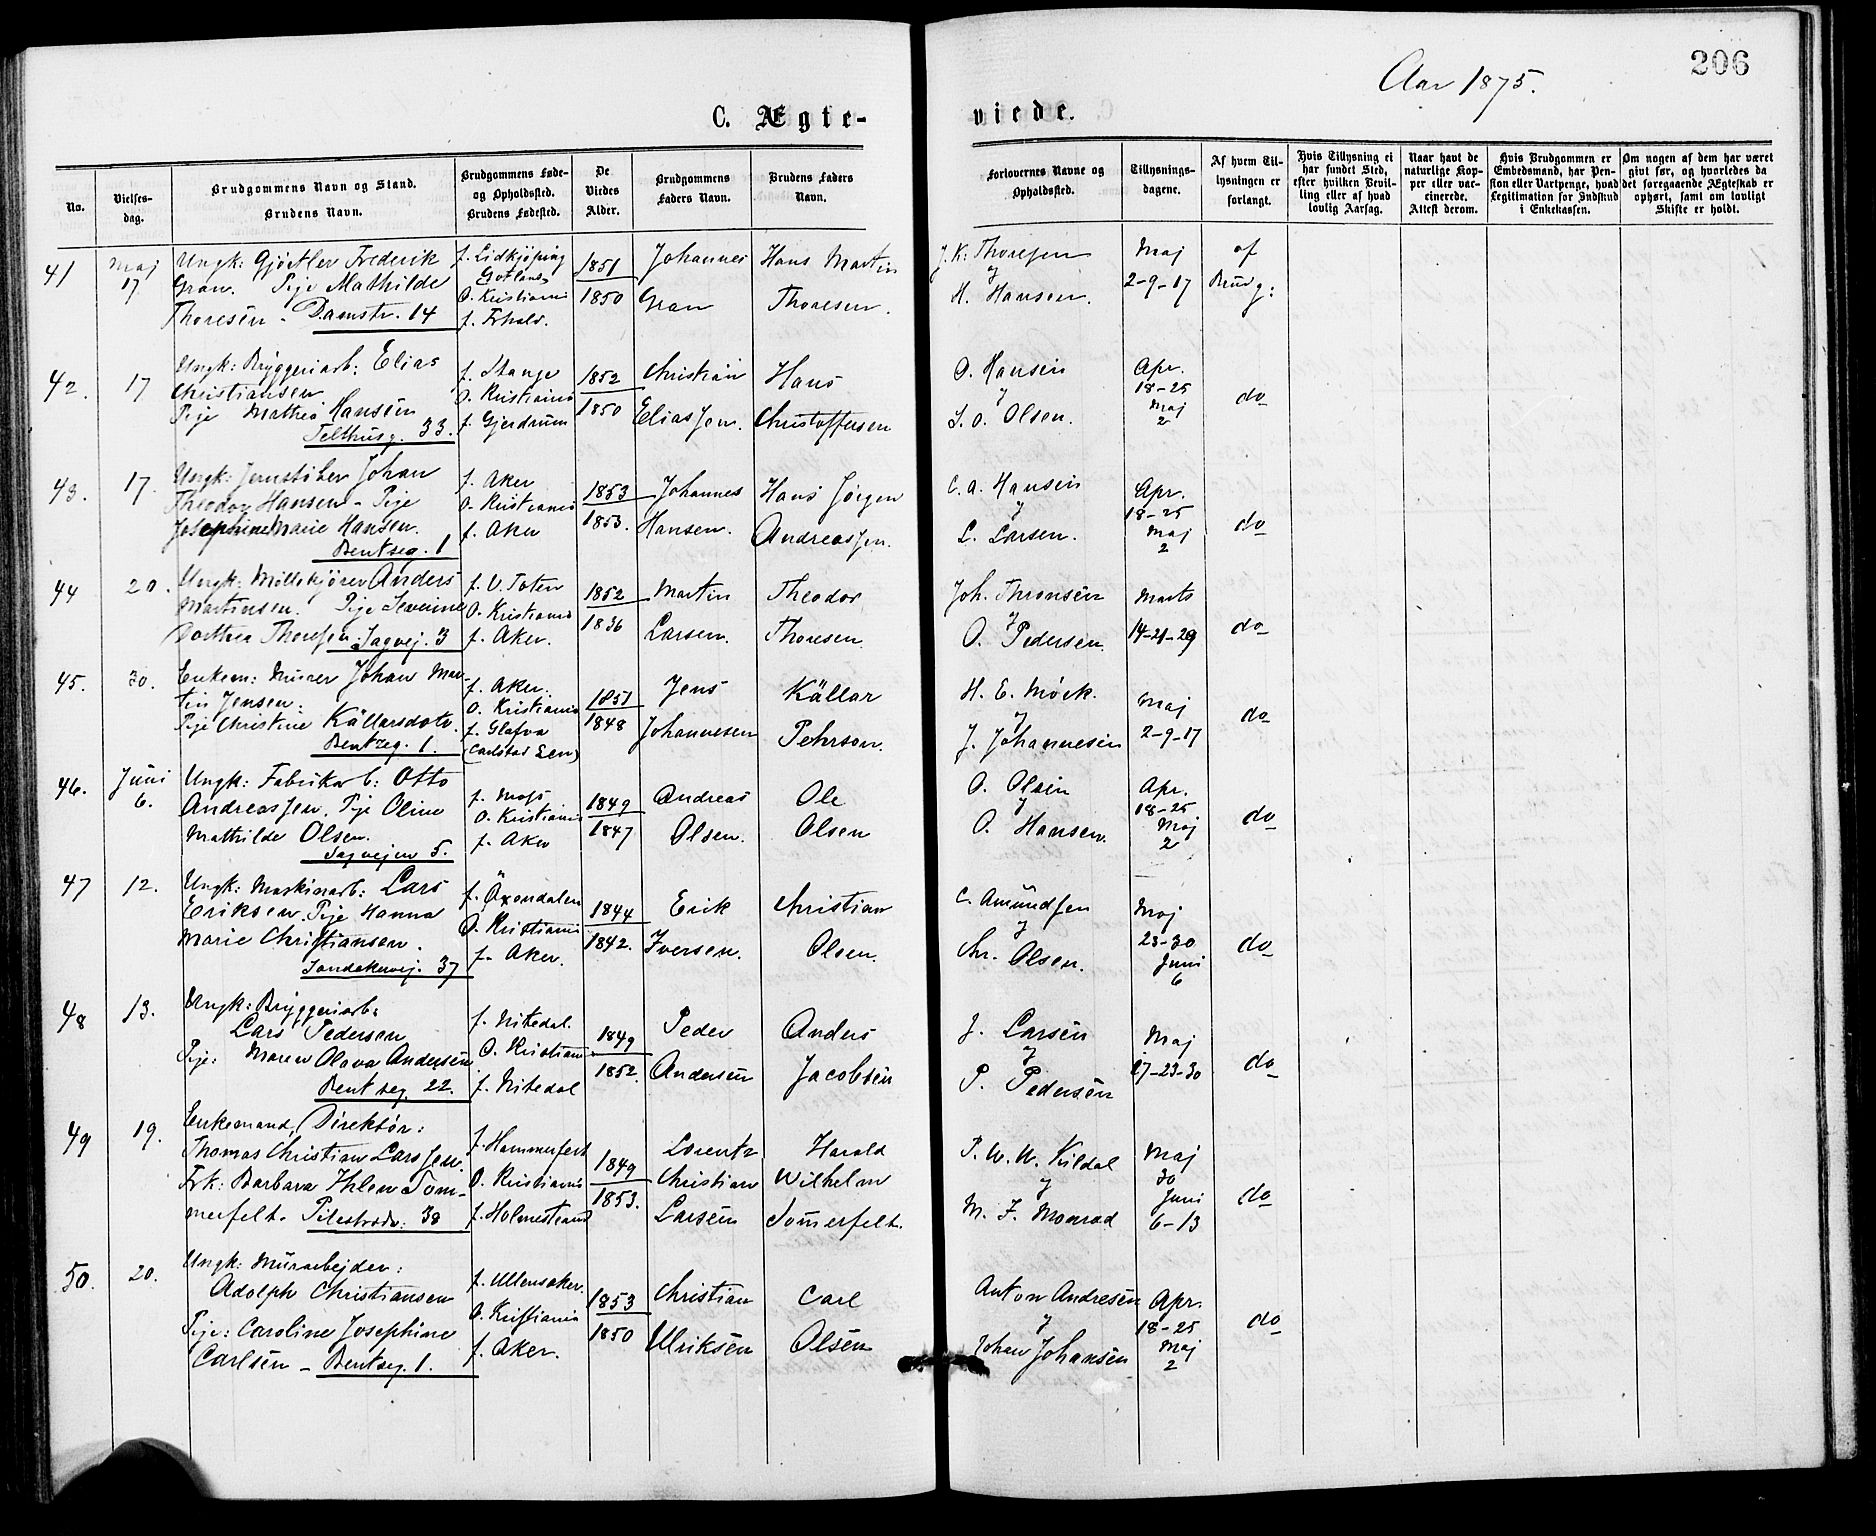 206
Aar 1875.
C. Ægte-
viede.
No.
Vielses-
dag.
Brudgommens Navn og Stand.
Brudens Navn.
Brudgommens Føde-
og Opholdssted.
Brudens Fødested.
De
Viedes
Alder.
Brudgommens
Faders Navn.
Brudens Faders
Navn.
Forlovernes Navne og
Opholdssted.
Tillysnings-
dagene.
Af hvem Til-
lysningen er
forlangt.
Hvis Tillysning ei
har fundet Sted,
efter hvilken Bevil-
ling eller af hvad
lovlig Aarsag.
Naar havt de
naturlige Kop-
per eller vac-
cinerede.
Attest derom.
Hvis Brudgommen er
Embedsmand, har Pen-
sion eller Vartpenge, hvad
Legitimation for Indskud
i Enkekassen.
Om nogen af dem har været
givt før, og hvorledes da
det foregaaende Ægteskab er
ophørt, samt om lovligt
Skifte er holdt.
41
Maj
17
Ungk: Gjørtler Frederik
Gran. Pige Mathilde
Thoresen - Damstr. 14
f. Lidkjøping
Gotland
O. Kristiania
f. Frhald.
1851
1850
Johannes
Gran
Hans Martin
Thoresen.
J. K. Thoresen
og
H. Hansen.
Maj
2-9-17
af
Brudg:
42.
17
Ungk: Bryggeriarb: Elias
Christiansen
Pige Mathea Hansen
Telthusg. 33.
f. Stange
O. Kristiania
f. Gjerdrum
1852
1850
Christian
Eliassen.
Hans
Christoffersen
O. Hansen
og
S. O. Olsen.
Apr.
18-25
Maj
2
do
43.
17.
Ungk: Jernstøber Johan
Theodor Hansen - Pige
Josephine Marie Hansen.
Bentseg. 1
f. Aker
O. Kristiania
f. Aker
1853
1853.
Johannes
Hansen.
Hans Jørgen
Andreassen.
C. A. Hansen
og
L. Larsen.
Apr.
18-25
Maj
2
do
44
20.
Ungk: Møllekjører Anders
Martinsen. Pige Severine
Dorthea Thoresen. Sagvej. 3
f. V. Toten
O. Kristiania
f. Aker.
1852
1836
Martin
Larsen.
Theodor
Thoresen.
Joh. Thronsen
og
O. Pedersen.
Marts
14-21-29
do
45.
30.
Enkem: Murer Johan Mar-
tin Jensen:
Pige Christine Källarsdotr.
Bentseg. 1.
f. Aker.
O. Kristiania
f. Glafva
(Carlstad Len)
1851
1848
Jens
Johannesen
Källar
Pehrson.
H. E. Mörk.
og
J. Johannesen
Maj
2-9-17
do
46.
Juni
6.
Ungk: Fabrikarb: Otto
Andreassen. Pige Oline
Mathilde Olsen.
Sagvejen 5.
f. Moss
O. Kristiania
f. Aker
1849
1847
Andreas
Olsen.
Ole
Olsen
O. Olsen
og
O. Hansen.
Apr.
18-25
Maj
2
do
47
12.
Ungk: Maskinarb: Lars
Eriksen. Pige Hanna
Marie Christiansen.
Sandakervej. 37
f. Öxendalen
O. Kristiania
f. Aker.
1844
1842.
Erik
Iversen.
Christian
Olsen.
C. Amundsen
og
Chr. Olsen.
Maj
23-30
Juni
6
do
48
13.
Ungk: Bryggeriarb:
Lars Pedersen
Pige: Maren Olava Andersen
Bentseg. 22.
f. Nitedal.
O. Kristiania
f. Nitedal
1849
1852.
Peder
Andersen
Anders
Jacobsen
J. Larsen
og
P. Pedersen
Maj
17-23-30
do
49
19.
Enkemand, Direktør:
Thomas Christian Larssen.
Frk: Barbara Ihlen Som-
merfelt. Pilestræde: 38
f. Hammerfest
O. Kristiania
f. Holmestrand
1849
1853.
Lorentz
Christian
Larsen
Harald
Wilhelm
Somerfelt.
P. W. W. Kildal
og
M. J. Monrad
Maj
30
Juni
6-13
do
50.
20.
Ungk: Murarbejder:
Adolph Christiansen
Pige: Caroline Josephine
Carlsen - Bentseg. 1.
f. Ullensaker.
O. Kristiania
f. Aker.
1853
1850
Christian
Ulriksen
Carl
Olsen
Anton Andresen
og
Johan Johansen
Apr.
18-25
Maj
2
do